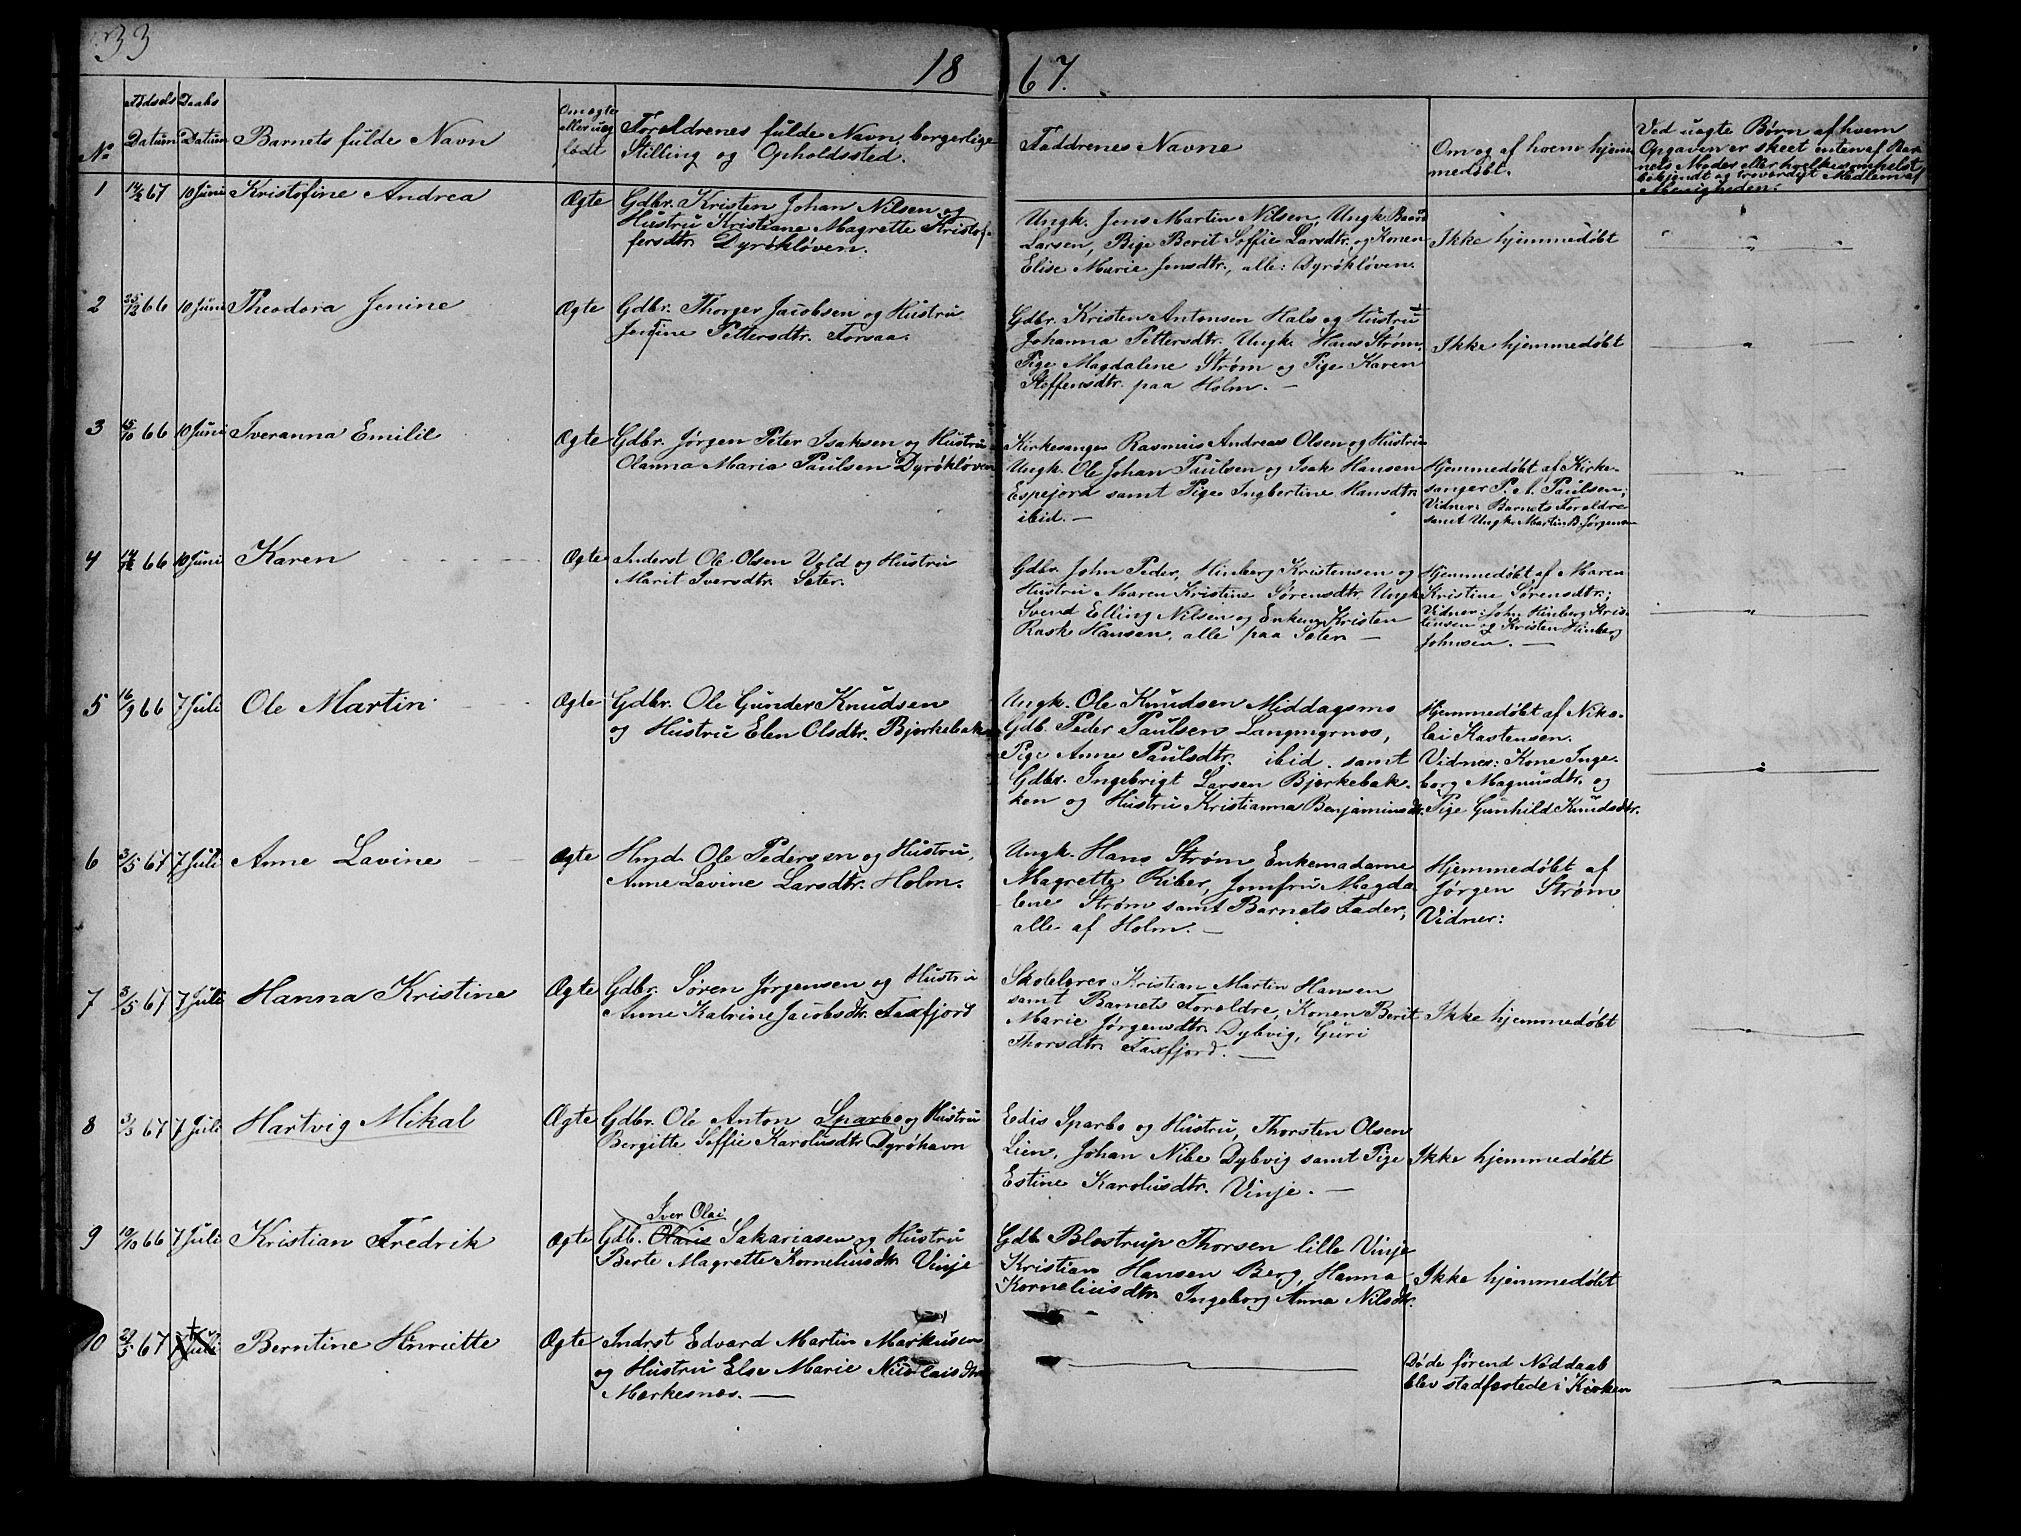 33
18 67.
No
Fødsels Datum
Daabs Datum
Barnets fulde Navn
Om ægte eller uæg født
Forældrenes fulde Navn, borgerlige
Stilling og Opholdssted.
Faddrenes Navne
Om og af hvem hjem
medøbt.
Ved uægte Børn af hvem
Opgaven er skeet enten af Bar
nets Moder eller hvilkesomhelst
bekjendt og troværdigt Medlem af
Menigheden.
1 67 10 Juni Kristofine Andrea Ægte
Gdbr. Kristen Johan Nilsen og
Hustru Kristiane Magrette Kristof-
fersdtr. Dyrøkløven.
Ungk. Jens Martin Nilsen, Ungk. Baard
Larsen, Pige Berit Soffie Larsdtr. og Konen
Elise Marie Jensdtr., alle: Dyrøkløven.
Ikke hjemmedøbt
2 25/12 66 10 Juni Theodora Jenine Ægte
Gdbr. Thorger Jacobsen og Hustru
Pettersdtr. Forsaa.
Gdbr. Kristen Antonsen Hals og Hustru
Johanna Pettersdtr. Ungk. Hans Strøm.
Pige Magdalene Strøm og Pige Karen
Steffensdtr. paa Holm. —
Ikke hjemmedøbt
3 15/10 66 10 Juni Iveranna Emilie Ægte
Gdbr. Jørgen Peter Isaksen og Hustru
Olanna Maria Paulsen Dyrøkløven
Kirkesanger Rasmus Andreas Olsen og Hustru
Ungk. Ole Johan Paulsen og Isak Hansen
Espejord samt Pige Ingbertine Hansdtr.
ibid. —
Hjemmedøbt af Kirke-
sanger P. A. Paulsen;
Vidner: Barnets Forældre
samt Ungk. Martin B. Jørgensen
4 66 10 Juni Karen Ægte
Inderst Ole Olsen Vold og Hustru
Marit Iversdtr. Seter.
Gdbr. John Peder Hinberg Kristensen og
Hustru Maren Kristine Sørensdtr. Ungk.
Svend Elling Nilsen og Enkem. Kristen
Rask Hansen, alle paa Seter —
Hjemmedøbt af Maren
Kristine Sørensdtr.;
Vidner: John Hinberg Kris-
tensen og Kristen Hinberg
Johnsen. —
5 16/9 66 7 Juli Ole Martin Ægte
Gdbr. Ole Gunder Knudsen
og Hustru Elen Olsdtr. Bjerkebak
Ungk. Ole Knudsen Middagsnes
Gdb. Peder Paulsen Langmyrnes,
Pige Anne Paulsdtr. ibid. samt
Gdbr. Ingebrigt Larsen Bjerkebak-
ken og Hustru Kristianna Benjaminsdtr.
Hjemmedøbt af Niko-
lei Kastensen.
Vidner: Kone Inge-
borg Magnusdtr. og
Pige Gunhild Knudsdtr.
6 3/5 67 7 Juli Anne Lavine Ægte
Hmd. Ole Pedersen og Hustru,
Anne Lavine Larsdtr. Holm.
Ungk. Hans Strøm Enkemadame
Magrette Riber, Jomfru Magda-
lene Strøm samt Barnets Fader,
alle af Holm. —
Hjemmedøbt af
Jørgen Strøm
Vidner:
7 3/5 67 7 Juli Hanna Kristine Ægte
Gdbr. Søren Jørgensen og Hustru
Anne Katrine Jacobsdtr. Faxfjord
Skolelærer Kristian Martin Hansen
samt Barnets Forældre, Konen Berit
Marie Jørgensdtr. Dybvig, Guri
Thorsdtr. Faxfjord. —
Ikke hjemmedøbt
8 3/3 67 7 Juli Hartvig Mikal Ægte
Gdbr. Ole Anton Sparbo og Hustru
Bergitte Soffie Karolusdtr. Dyrøhavn
Edis Sparbo og Hustru, Thorsten Olsen
Lien, Johan Nibe Dybvig samt Pige
Estine Karolusdtr. Vinje. —
Ikke hjemmedøbt
9 19/10 66 7 Juli Kristian Fredrik Ægte
Iver Olai
Gdb. Olaris Sakariasen og Hustru
Berte Magrette Korneliusdtr. Vinje
Gdb. Blostrup Thorsen lille Vinje
Kristian Hansen Berg, Hanna
Korneliusdtr. Ingeborg Anna Nilsdtr.
Ikke hjemmedøbt
10 67 7 Juli Berntine Henriette Ægte
Indrst Edvard Martin Markusen
og Hustru Else Marie Nicolaisdtr.
Mærkesnes. —
Døde førend Nøddaab
blev stadfæstede i Kirken